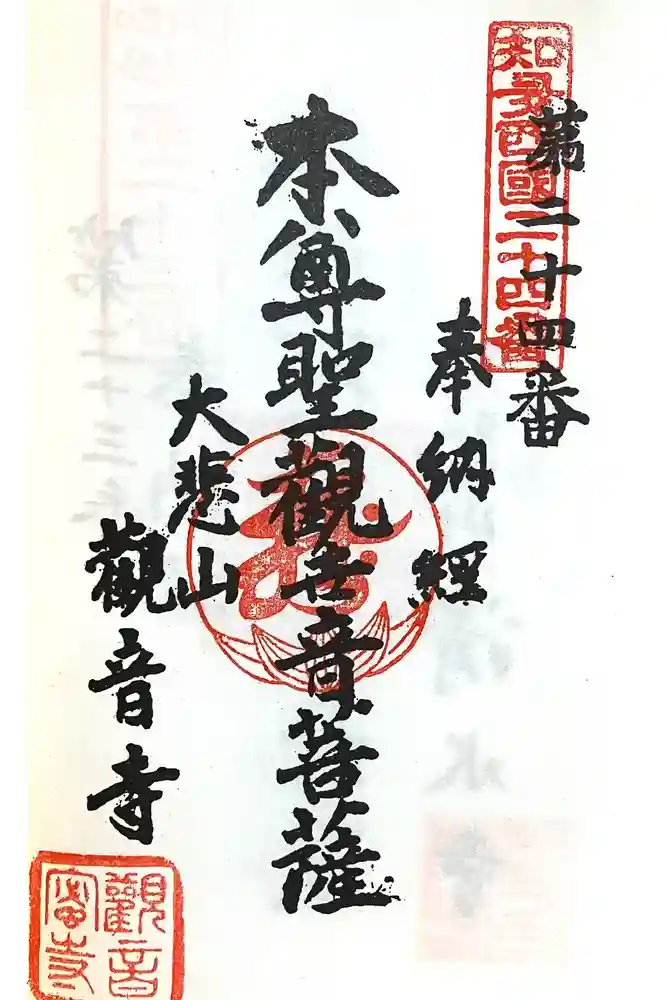 第二十四番
知多西國二十四番
奉納経
本尊聖觀世音菩薩
大悲山
觀音寺
觀音
寺